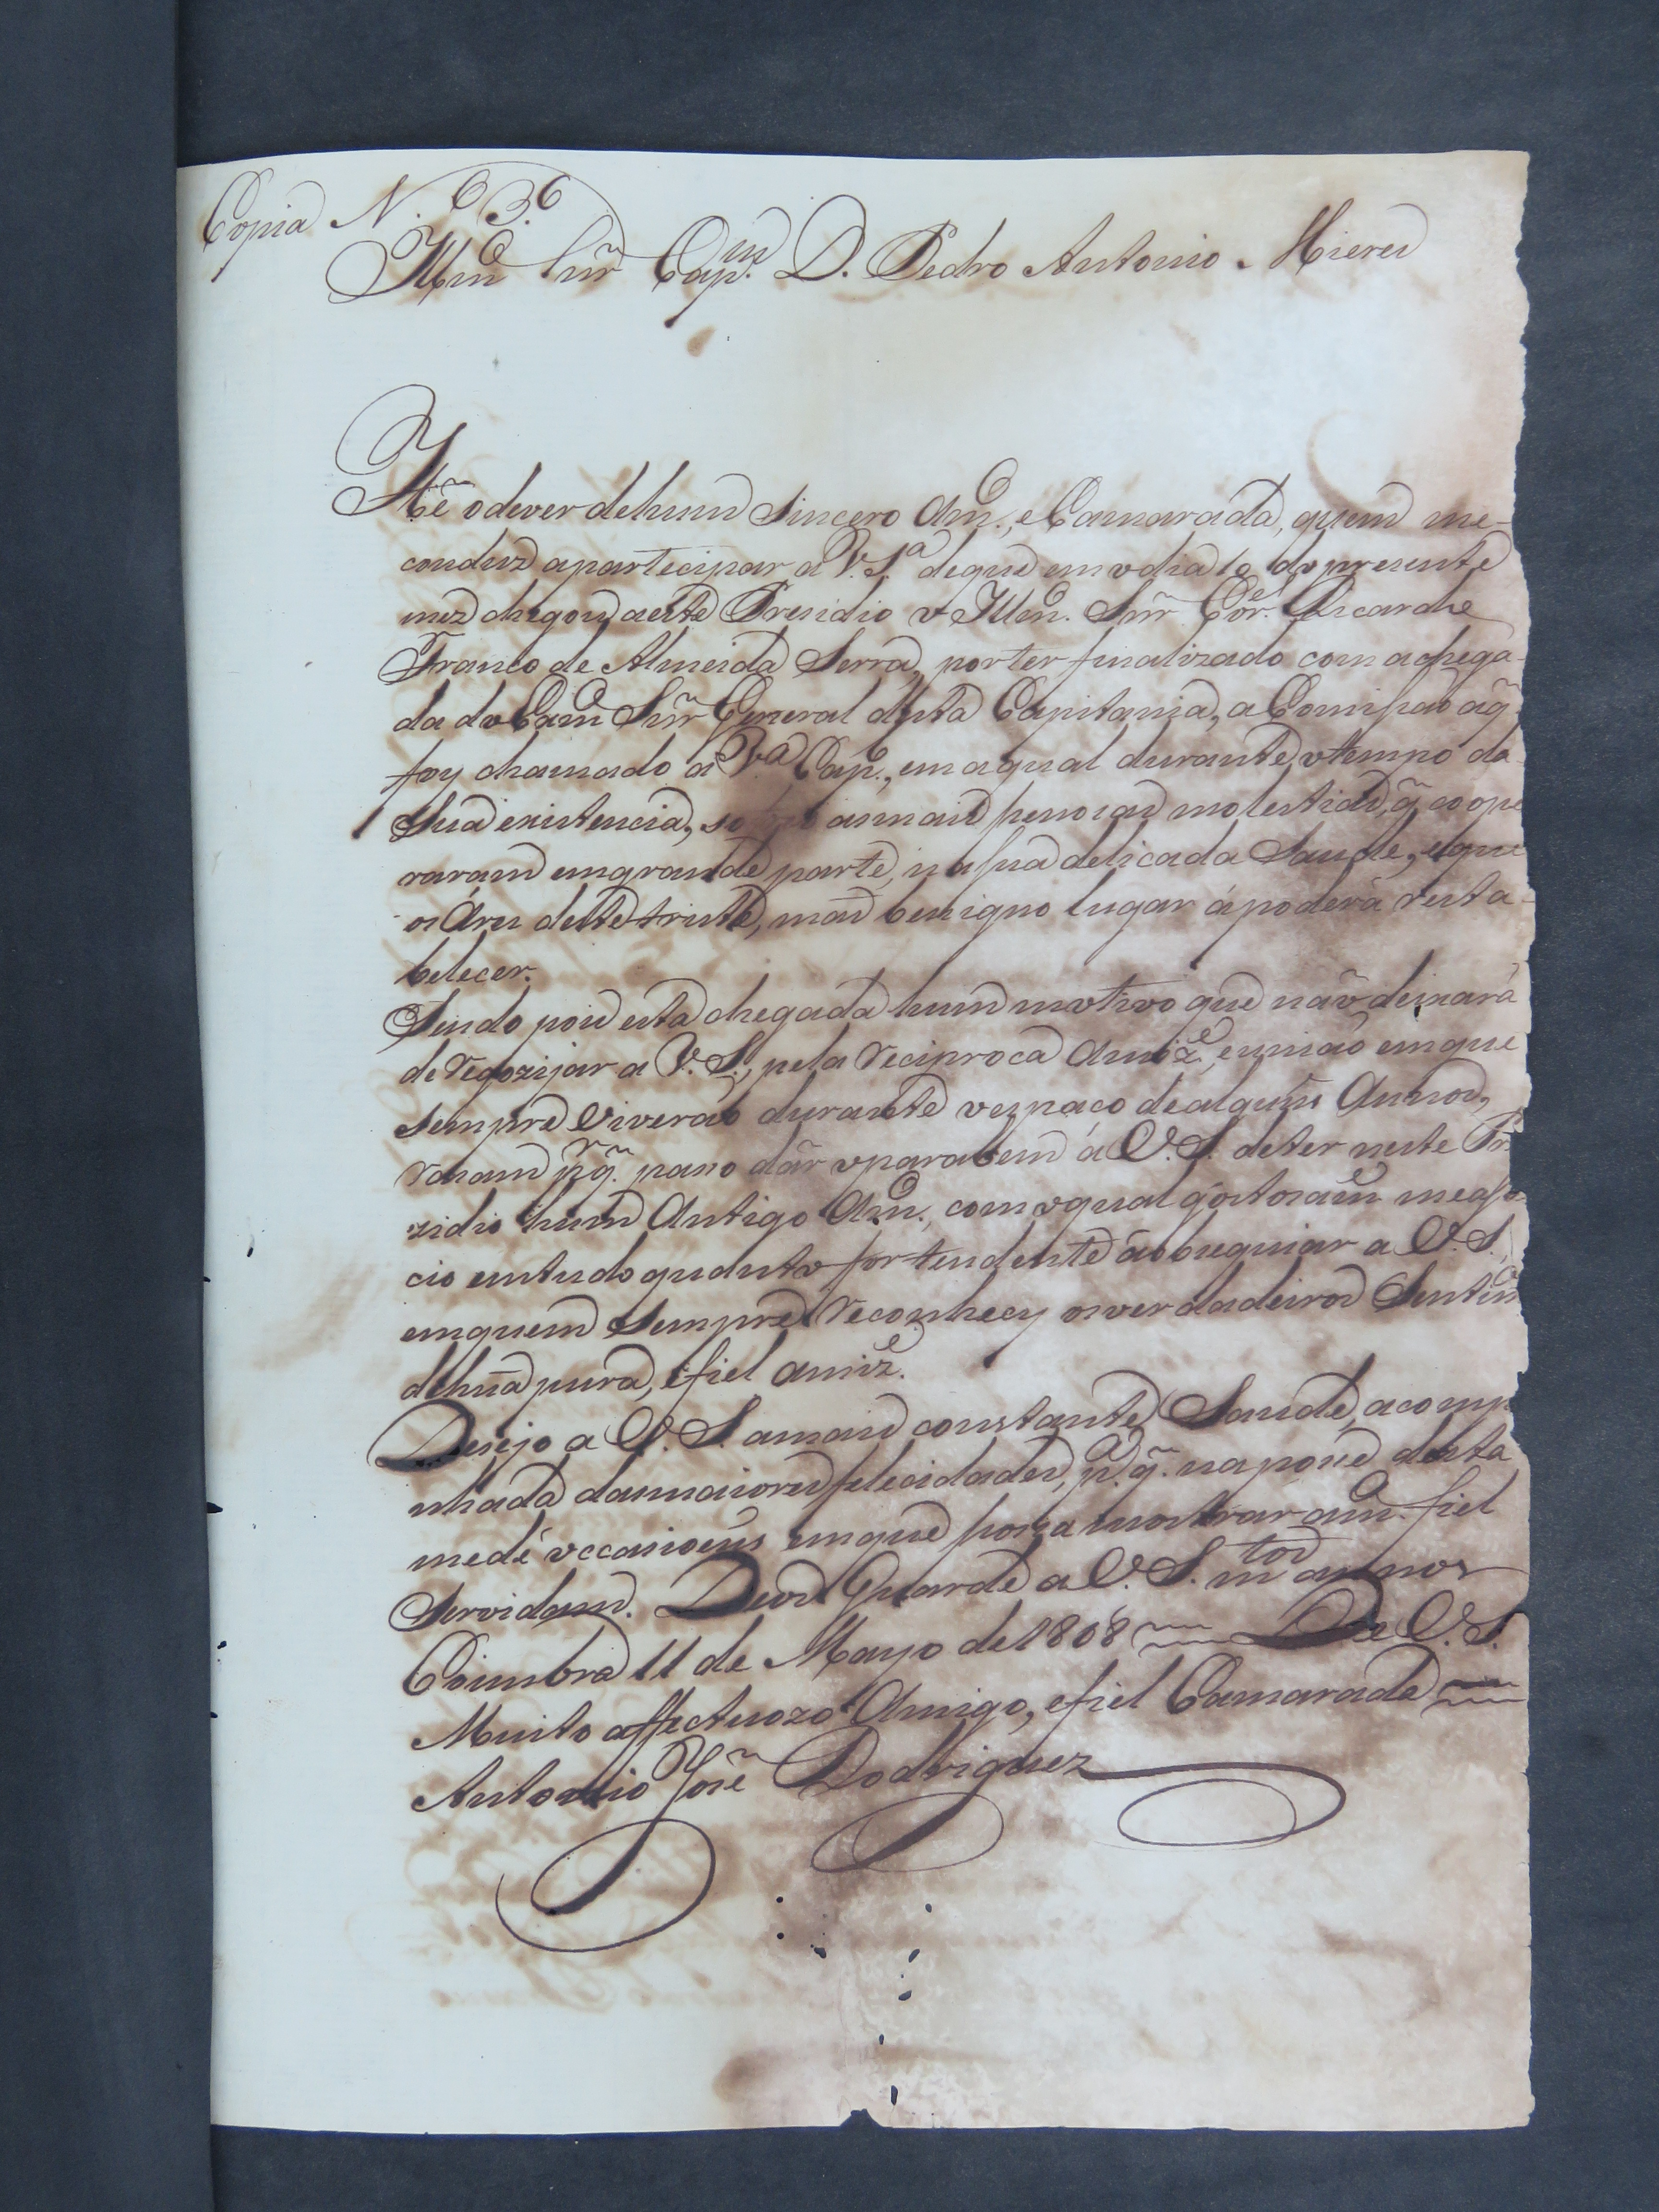 Copia N. 3.º
Illmº Snr̃ Capm. D. Pedro Antonio Mieres
Hé o dever de hum Sincero Amº., e Camarada, quem me
conduz a partecipar a V. Sª de que em o dia 10 do prezente
mez chegou a este Presidio o Illmº. Snr̃ Coreº. Ricardo
Franco de Almeida Serra, por ter finalizado com a chega-
da do Exmº Snr̃ General desta Capitania, a Comissão a q̃
foy chamado a Vª Capª., em a qual durante o tempo da
Sua existencia, as mais penozas molestias, q̃ coope
raram em grande parte, na sua delicada Saude, e que
os Ares deste triste, mas benigno lugar a poderá resta-
belecer.
Sendo pois esta chegada hum motivo que não deixará
de regozijar a V. S., pela reciproca Amizᵉ, e união em que
sempre Viverão durante o espaço de alguns Annos,
rasam p.q̃. passo dár o parabem á V. S. de ter neste Pre
zidio hum Antigo Amº., com o qual gostosam.ᵉ me asso
cio em tudo quanto for tendente á obsequiar a V. S.
em quem Sempre reconhecy os verdadeiros Sentimᵒˢ
de huã pura, e fiel amizᵉ.
Desejo a V. S. a mais constante Saude, acomp
nhada das maiores felecidades, pª. q̃. na posse desta
me dê occasioens em que possa mostrar a mª. fiel
Servidam. Deos Guarde a V. S. mtos annos
Coimbra 11 de Mayo de 1808 De V. S.
Muito affectuozo Amigo, e fiel Camarada
Antonio José Rodriguez